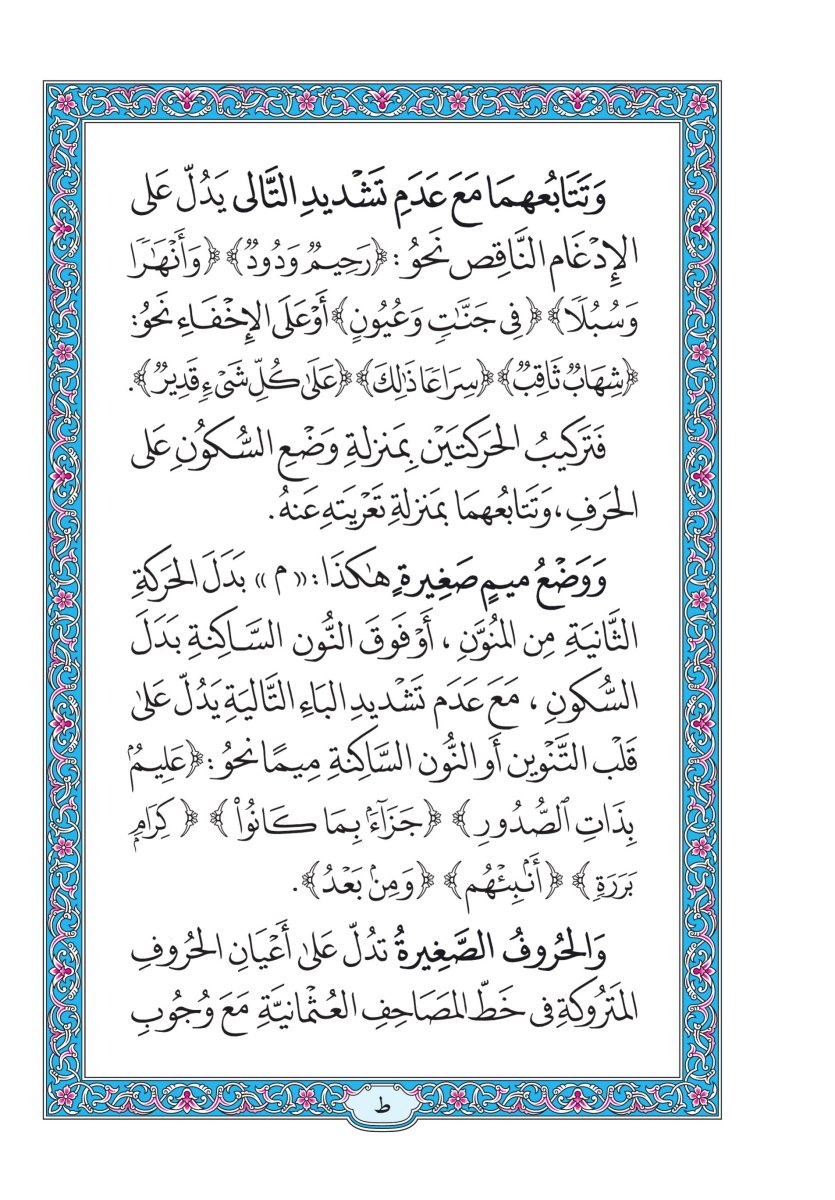 وَتَتَابُعهمَا مَعَ عَدَمِ تَشْدِيدِ التَّالى يَدُلّ عَلى
الإِدْغَام النَّاقِص نَحوُ: ﴿رَحِيمٌ وَدُودٌ﴾ ﴿وَأَنْهَٰرًا
وَسُبُلًا﴾ ﴿فِى جَنَّٰتٍ وَعُيُونٍ﴾ أَوْعَلَى الإِخْفَاءِ نَحوُ:
﴿شِهَابٌ ثَاقِبٌ﴾ ﴿سِرَاعًا ذَٰلِكَ﴾ ﴿عَلَىٰ كُلِّ شَىْءٍ قَدِيرٌ﴾.
فَتَركيبُ الحَركتَيَنْ بِمَنزلةِ وَضْعِ السُّكوُنِ عَلى
الحَرفِ، وَتَتَابُعُهمَا بمَنزلةِ تَعْريَتِهِ عَنهُ.
وَوَضْعُ ميمٍ صَغِيرةٍ هٰكَذَا: « م » بَدَلَ الحَركةِ
الثَّانيَةِ مِن المُنوَّنِ، أَوْ فَوقَ النُّون السَّاكِنةِ بَدَلَ
السُّكونِ، مَعَ عَدَم تَشْديدِ البَاءِ التَّاليَةِ يَدُلّ عَلىٰ
قَلْب التَّنْوين أَو النُّون السَّاكِنةِ مِيمًا نحوُ: ﴿عَلِيمُۢ
بِذَاتِ ٱلصُّدُورِ﴾ ﴿جَزَآءَۢ بِمَا كَانُوا۟﴾ ﴿كِرَامِۭ
بَرَرَةٍ﴾ ﴿أَنۢبِئْهُم﴾ ﴿وَمِنۢ بَعْدُ﴾.
وَالحُروفُ الصَّغِيرةُ تدُلّ عَلىٰ أَعْيَانِ الحُروفِ
المَتَرُوكةِ فى خَطّ المَصَاحِفِ العُثْمَانيَّةِ مَعَ وُجُوبِ
ط